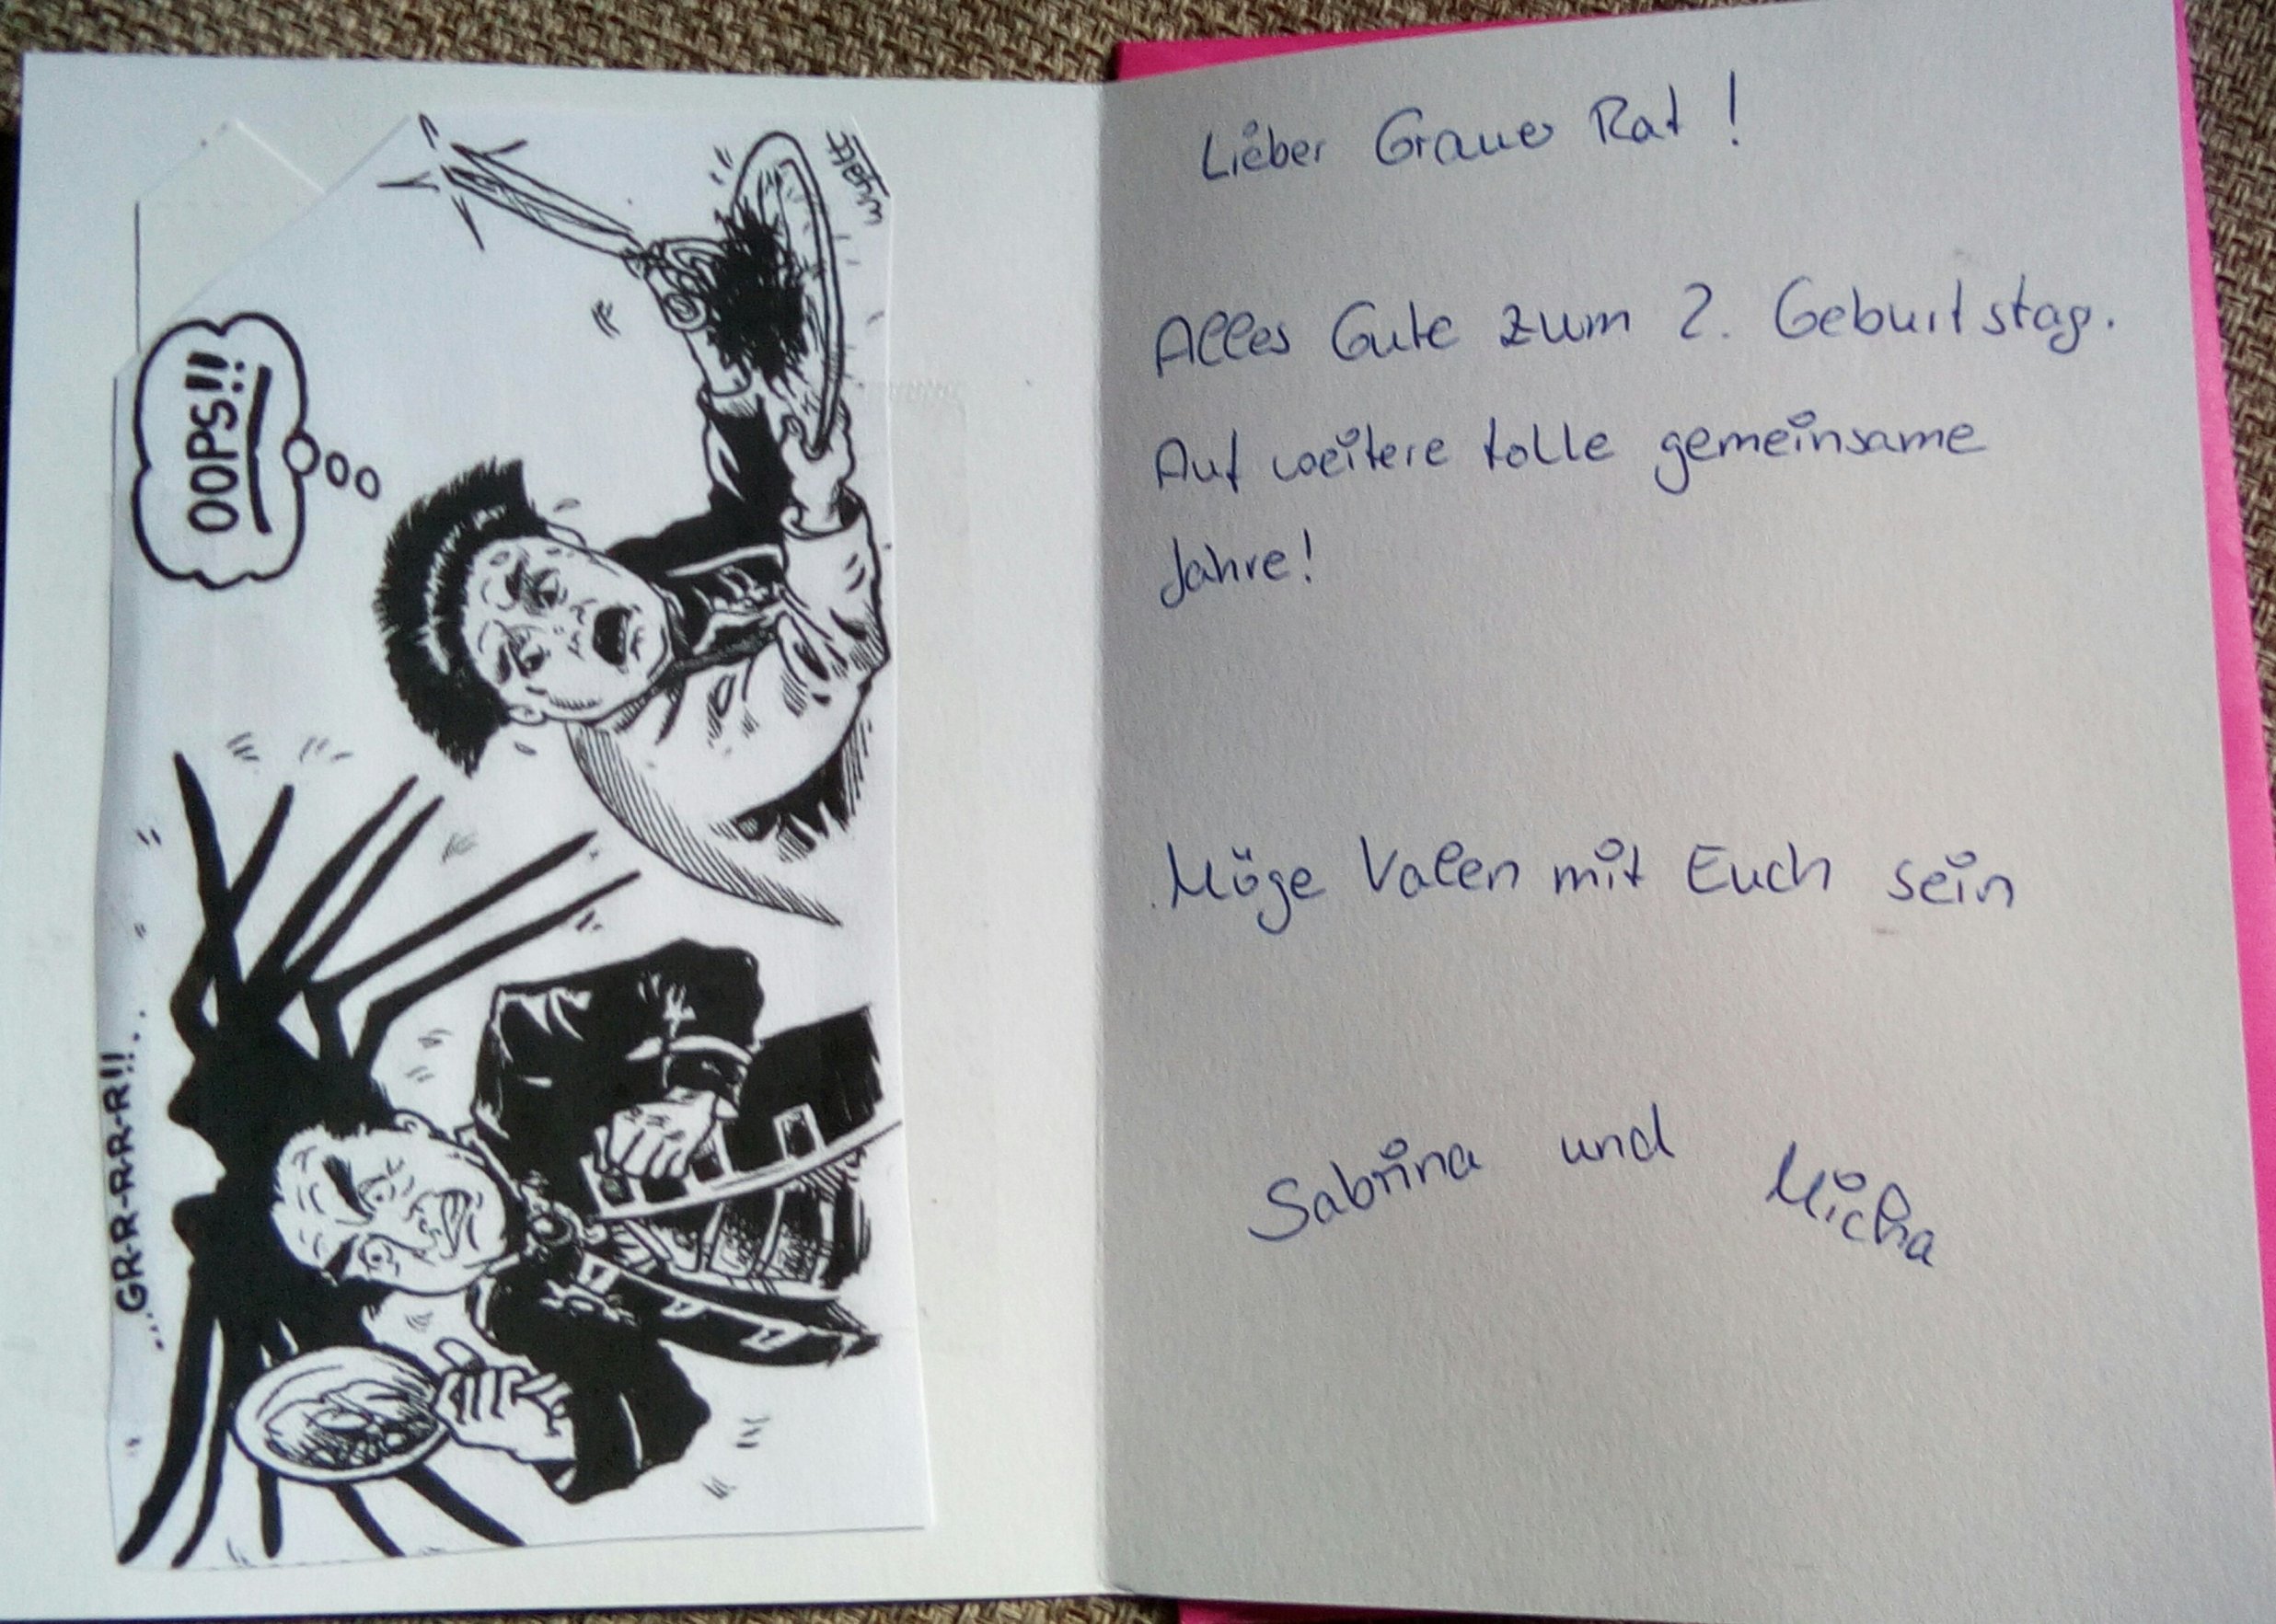 OOPS!!
...GR-R-R-R-R-R!!...
wyatt
Lieber Grauer Rat!
Alles Gute zum 2. Geburtstag.
Auf weitere tolle gemeinsame
Jahre!
Möge Valen mit Euch sein
Sabrina und Micha